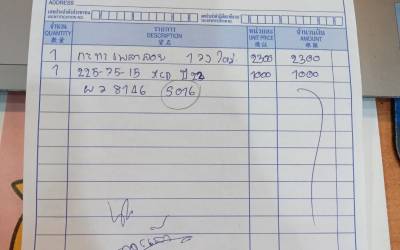 ADDRESS
เลขประจำตัวประชาชน
IDENTIFICATION NO.
เลขประจำตัวผู้เสียภาษีอากร
จำนวน รายการ หน่วยละ จำนวนเงิน
QUANTITY DESCRIPTION UNIT PRICE AMOUNT
1 กะทะเพลาลอย 1 วง ใหญ่ 2300 2300
1 225-75-15 ปี 22 1000 1000
ผว 8146 5016